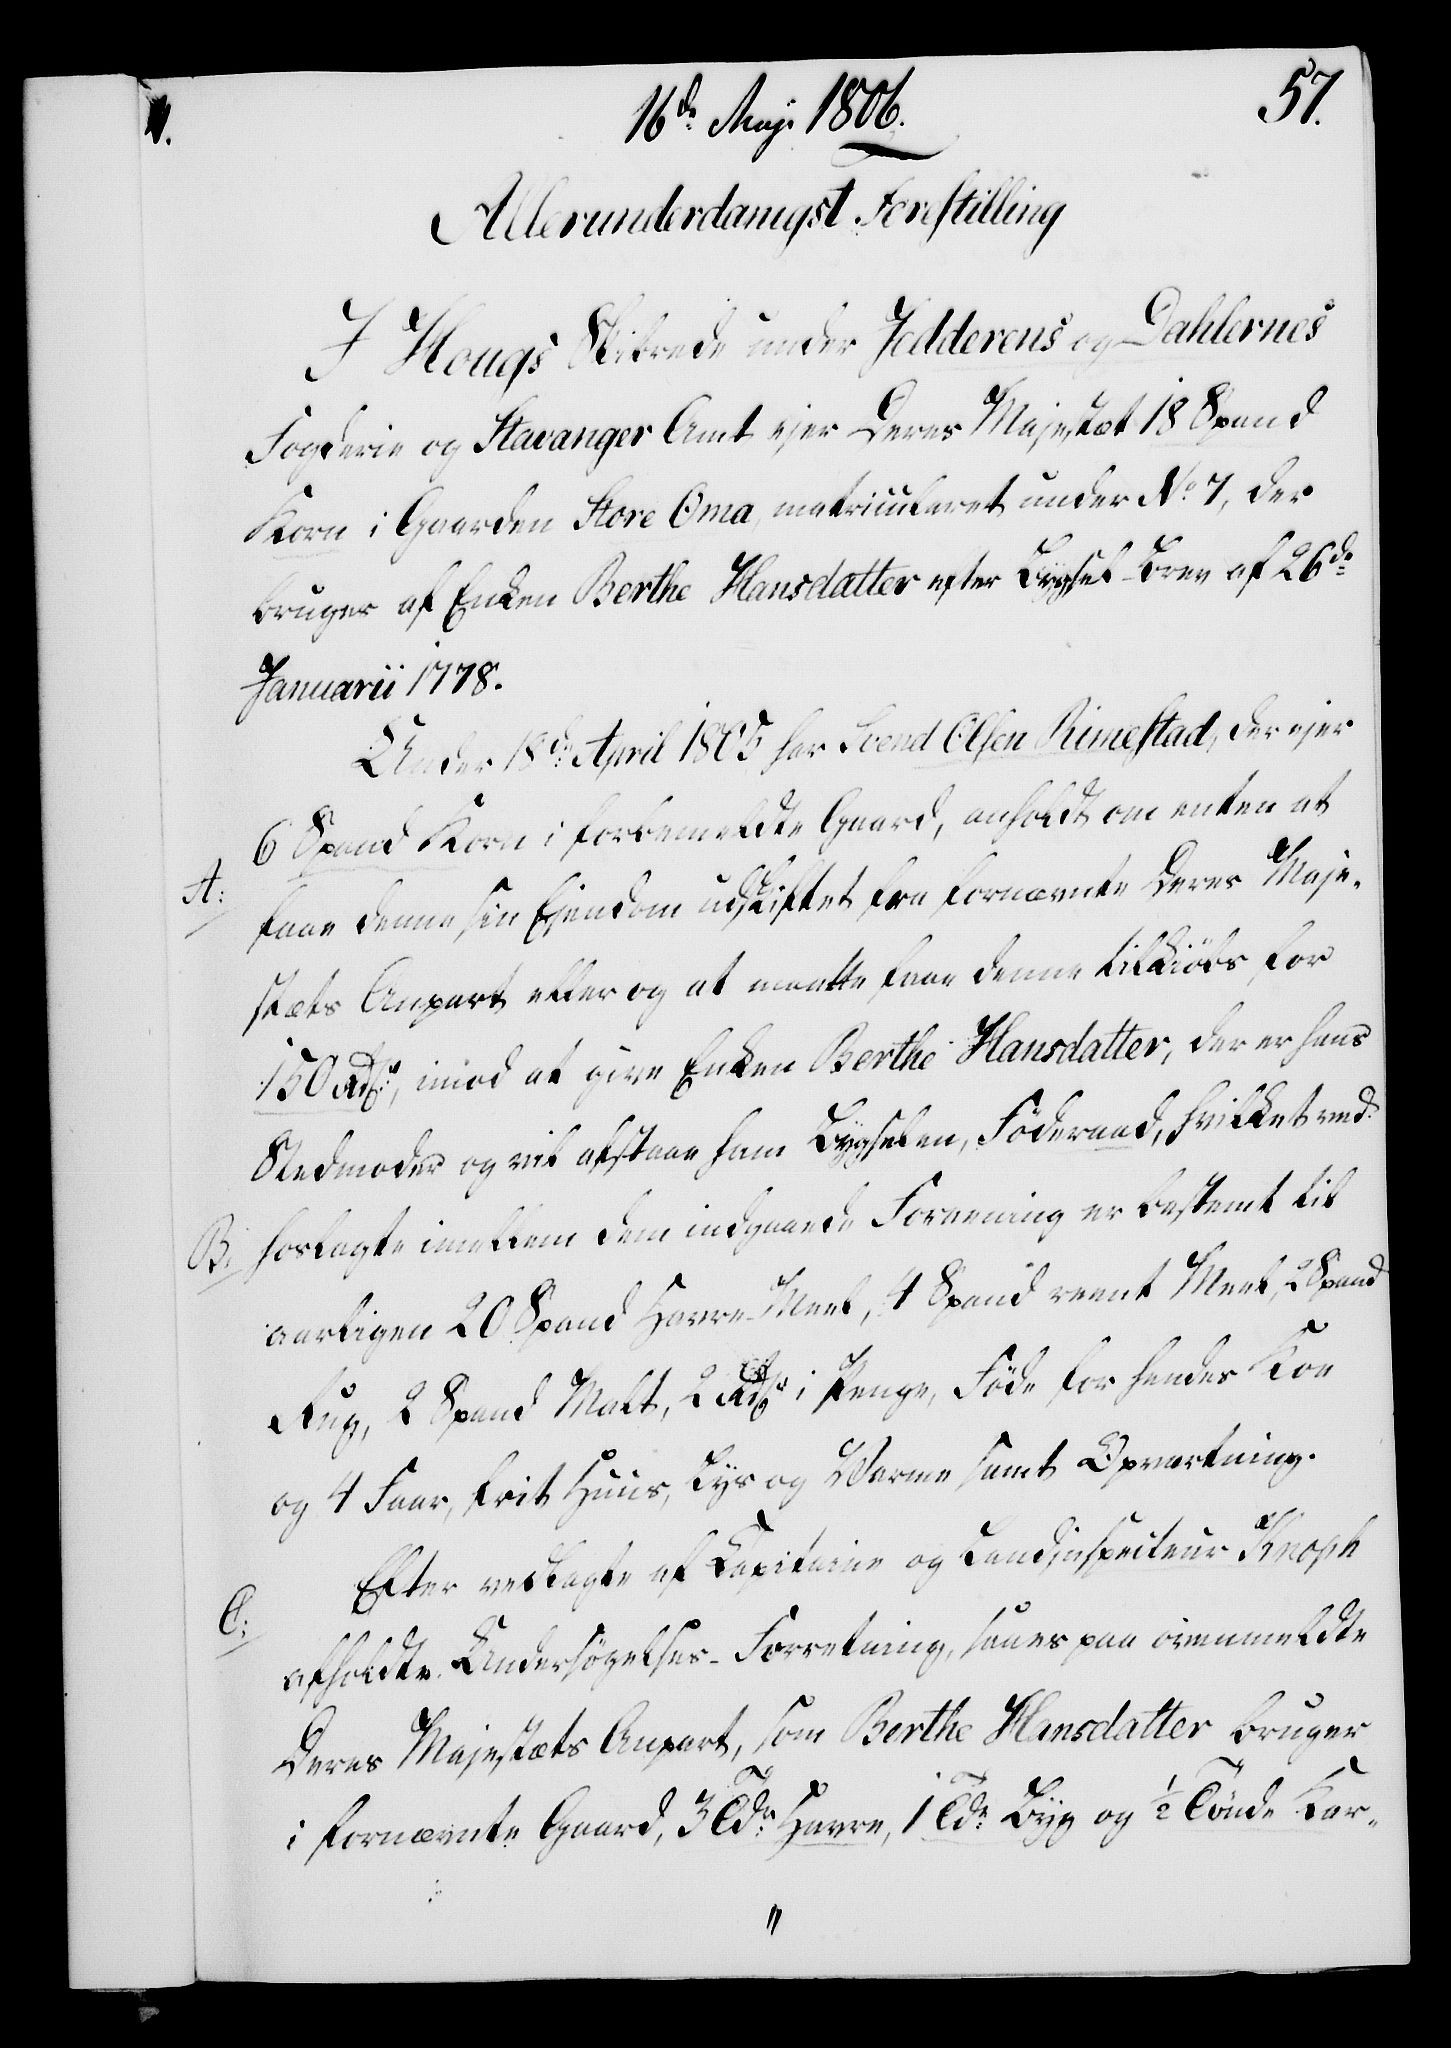 57.
16de Maji 1806.
Allerunderdanigst Forestilling
I Hougs Skibrede under Jedderens og Dahlernes
Fogderie og Stavanger Amt ejer Deres Majestæt 18 Spand
Korn i Gaarden Store Oma, matriculeret under No 7, der
bruges af Enken Berthe Hansdatter efter Bygsel-Brev af 26de
Januarii 1778.
Under 18de April 1805 har Svend Olsen Rimestad, der ejer
6 Spand Korn i forbemeldte Gaard, anholdt om enten at
A: faae denne sin Ejendom udskiftet fra fornævnte Deres Maje-
stæts Anpart eller og at maatte faae denne tilkiøbs for
150 Rdr, imod at give Enken Berthe Hansdatter, der er hans
Stedmoder og vil afstaae ham Bygselen, Föderaad, hvilket ved
B: hoslagte imellem dem indgaaede Forening er bestemt til
aarligen 20 Spand Havre-Meel, 4 Spand reent Meel, 2 Spand
Rug, 2 Spand Malt, 2 Rdr i Penge, Föde for hendes Koe
og 4 Faar, frit Huus, Lys og Varme samt Opvartning.
Efter vedlagte af Capitaine og Landinspecteur Knoph
C: afholdte Undersøgelses-Forretning, saaes paa ovenmeldte
Deres Majestæts Anpart, som Berthe Hansdatter bruger
i fornævnte Gaard, 3 Tdr Havre, 1 Tde Byg og ½ Tönde Kar-